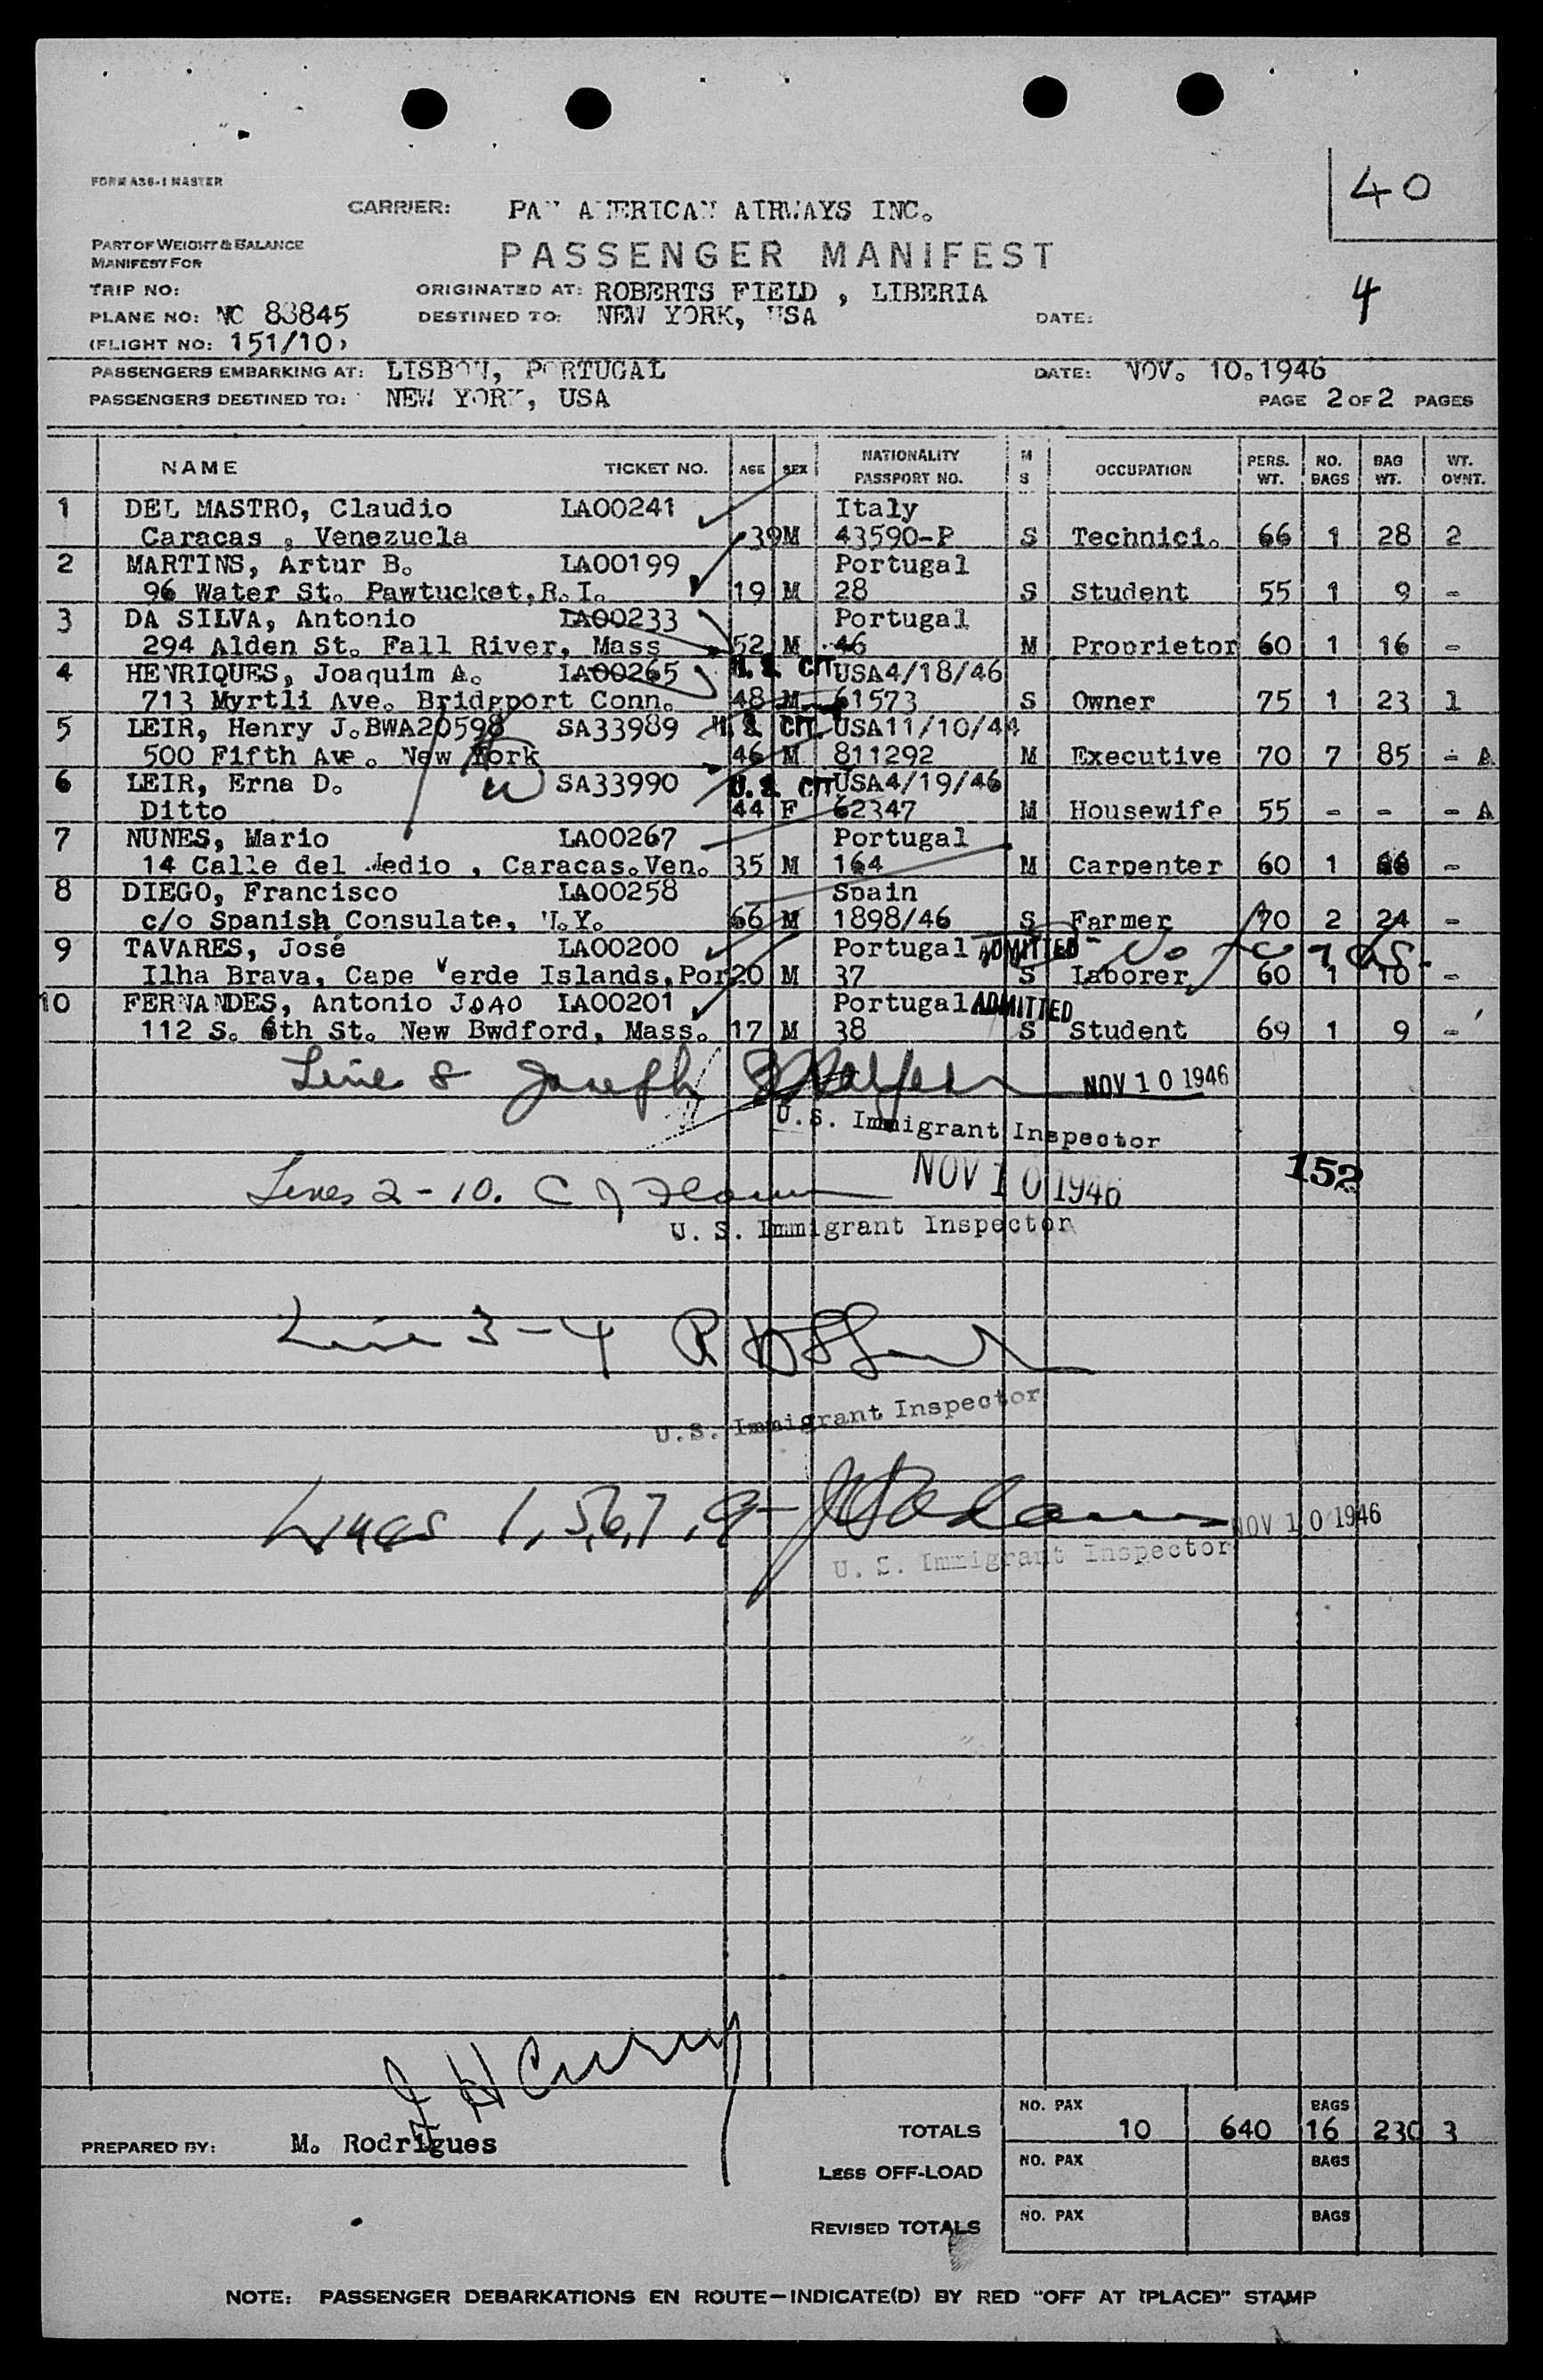 FORM A36-1 MASTER
40
CARRIER: PAN AMERICAN AIRWAYS INC.
PART OF WEIGHT & BALANCE
MANIFEST FOR
PASSENGER MANIFEST
TRIP NO: ORIGINATED AT: ROBERTS FIELD , LIBERIA
4
PLANE NO: NC 88845 DESTINED TO: NEW YORK, USA DATE:
(FLIGHT NO: 151/10)
PASSENGERS EMBARKING AT: LISBON, PORTUGAL DATE: NOV. 10.1946
PASSENGERS DESTINED TO: NEW YORK, USA PAGE 2 OF 2 PAGES
NAME TICKET NO. AGE SEX NATIONALITY PASSPORT NO. M S OCCUPATION PERS. WT. NO. BAGS BAG WT. WT. OVNT.
1 DEL MASTRO, Claudio LA00241 Italy
Caracas , Venezuela 39 M 43590-P S Technici. 66 1 28 2
2 MARTINS, Artur B. LA00199 Portugal
96 Water St. Pawtucket,R.I. 19 M 28 S Student 55 1 9 -
3 DA SILVA, Antonio LA00233 Portugal
294 Alden St. Fall River, Mass 52 M 46 M Proprietor 60 1 16 -
4 HENRIQUES, Joaquim A. LA00265 U.S. CIT USA4/18/46
713 Myrtli Ave. Bridgport Conn. 48 M 61573 S Owner 75 1 23 1
5 LEIR, Henry J.BWA20598 SA33989 U.S. CIT. USA11/10/44
500 Fifth Ave. New York 46 M 811292 M Executive 70 7 85 - A
6 LEIR, Erna D. SA33990 U.S. CIT USA4/19/46
Ditto 44 F 62347 M Housewife 55 - - - A
7 NUNES, Mario LA00267 Portugal
14 Calle del Medio , Caracas.Ven. 35 M 164 M Carpenter 60 1 -
8 DIEGO, Francisco LA00258 Spain
c/o Spanish Consulate, N.Y. 66 M 1898/46 S Farmer 70 2 24 -
9 TAVARES, José LA00200 Portugal ADMITTED - No
Ilha Brava, Cape Verde Islands,Por 20 M 37 S Laborer 60 1 10 -
10 FERNANDES, Antonio JOAO LA00201 Portugal ADMITTED
112 S. 6th St. New Bwdford, Mass. 17 M 38 S Student 69 1 9 -
Line 8 Joseph NOV 10 1946
U.S. Immigrant Inspector
152
Lines 2-10. C J NOV 10 1946
U. S. Immigrant Inspector
Line 3-4
U.S. Immigrant Inspector
Lines 1,5,6,7,9- NOV 10 1946
U. S. Immigrant Inspector
J H Curry
PREPARED BY: M. Rodrigues
TOTALS NO. PAX 10 640 BAGS 16 230 3
LESS OFF-LOAD NO. PAX BAGS
REVISED TOTALS NO. PAX BAGS
NOTE: PASSENGER DEBARKATIONS EN ROUTE—INDICATE(D) BY RED "OFF AT (PLACE)" STAMP